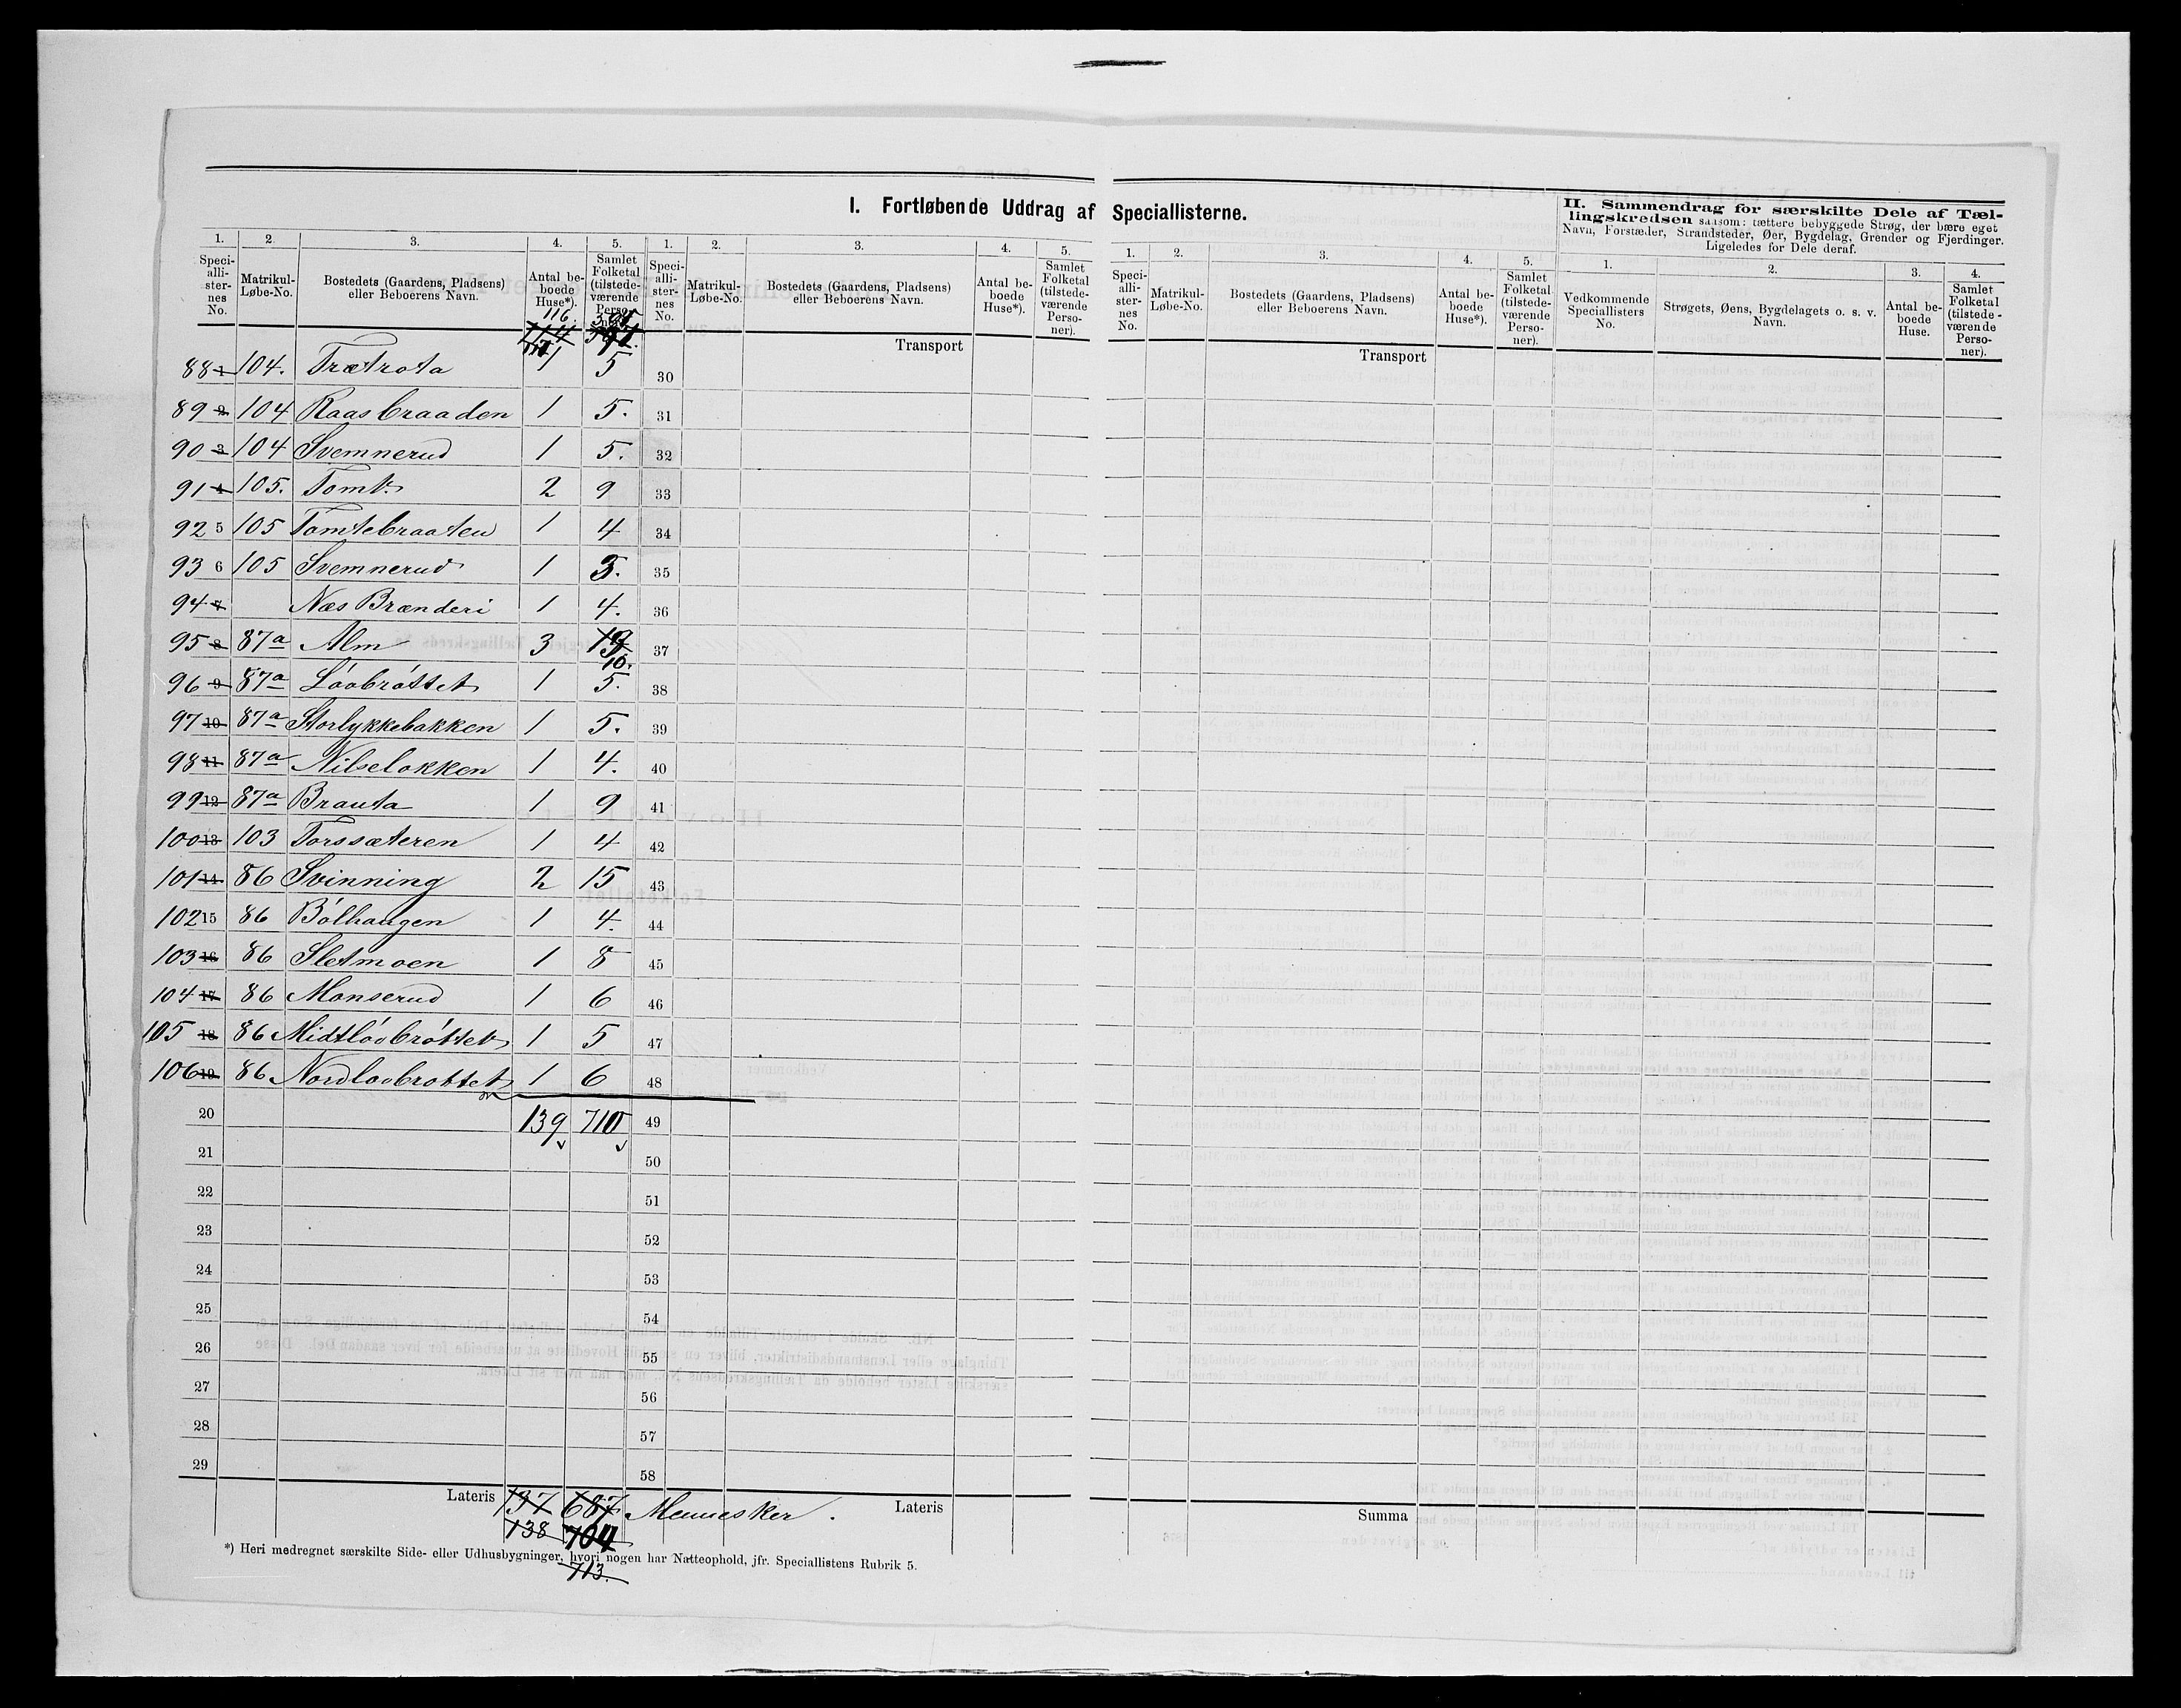 I. Fortløbende Uddrag af Speciallisterne.
II. Sammendrag for særskilte Dele af Tæl-
lingskredsen saasom: tættere bebyggede Strøg, der bære eget
Navn, Forstæder, Strandsteder, Øer, Bygdelag, Grender og Fjerdinger.
Ligeledes for Dele deraf.
1. 2. 3. 4. 5. 1. 2. 3. 4. 5. 1. 2. 3. 4. 5. 1. 2. 3. 4.
Speci-alli-ster-nes No. Matrikul-Løbe-No. Bostedets (Gaardens, Pladsens) eller Beboerens Navn. Antal be-boede Huse*). Samlet Folketal (tilstede-værende Perso-ner).
Speci-alli-ster-nes No. Matrikul-Løbe-No. Bostedets (Gaardens, Pladsens) eller Beboerens Navn. Antal be-boede Huse*). Samlet Folketal (tilstede-værende Perso-ner).
Speci-alli-ster-nes No. Matrikul-Løbe-No. Bostedets (Gaardens, Pladsens) eller Beboerens Navn. Antal be-boede Huse*). Samlet Folketal (tilstede-værende Perso-ner).
Vedkommende Speciallisters No. Strøgets, Øens, Bygdelagets o. s. v. Navn. Antal be-boede Huse. Samlet Folketal (tilstede-værende Perso-ner).
116.
Transport Transport
88 1 104. Trætrota 1 5 30
89 2 104 Raasbraaden 1 5. 31
90 3 104 Svemnerud 1 5. 32
91 4 105. Tomt. 2 9 33
92 5 105 Tomtebraaten 1 4 34
93 6 105 Svemnerud 1 3. 35
94 7 Næs Brænderi 1 4. 36
95 8 87a Alm 3 16. 37
96 9 87a Lóobróttet 1 5. 38
97 10 87a Storlykkebakken 1 5. 39
98 11 87a Nilselokken 1 4. 40
99 12 87a Brauta 1 9 41
100 13 103 Torssæteren 1 4 42
101 14 86 Svinning 2 15 43
102 15 86 Bólhaugen 1 4. 44
103 16 86 Sletmoen 1 8 45
104 17 86 Monserud 1 6 46
105 18 86 Midtlóobróttet 1 5 47
106 19 86 Nordloobrottet 1 6 48
20 139 710 49
21 50
22 51
23 52
24 53
25 54
26 55
27 56
28 57
29 58
Lateris 137 687 Mennesker. Lateris Summa
138 704
*) Heri medregnet særskilte Side- eller Udhusbygninger, hvori nogen har Natteophold, jfr. Speciallistens Rubrik 5.
713.